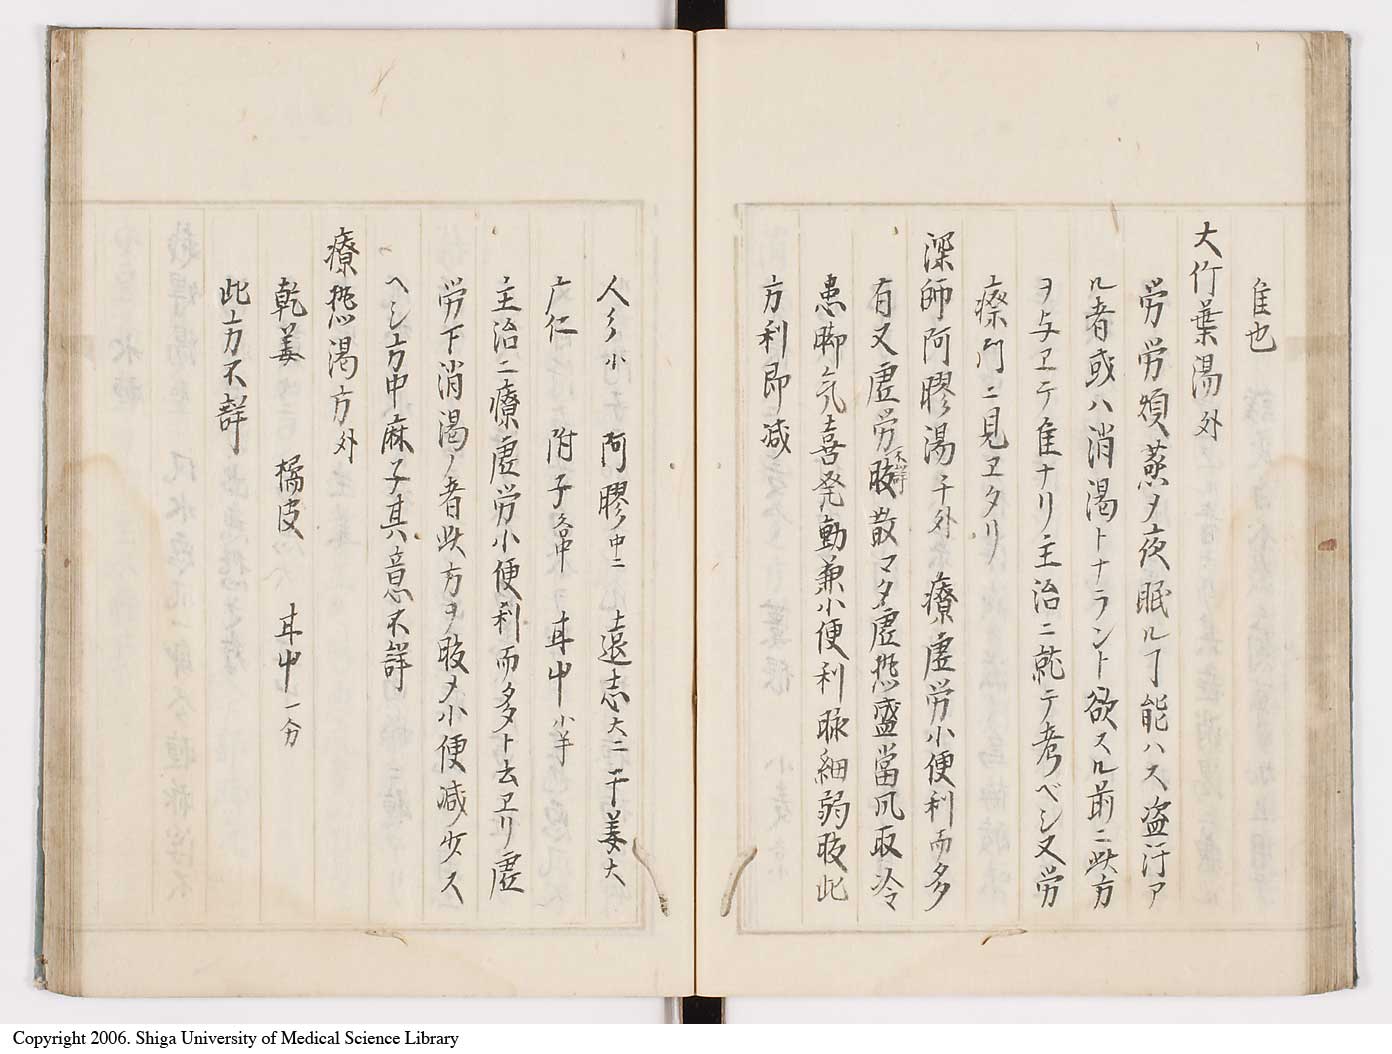 隹也
大竹葉湯外
労労煩蒸メ夜眠ルヿ能ハス盗汗ア
ル者或ハ消渇トナラント欲スル前ニ此方
ヲ与ヱテ隹ナリ主治ニ就テ考ベシ又労
瘵門ニ見ヱタリ
深師阿膠湯千外 療虚労小便利而多
有又虚労服不詳散マタ虚熱盛當風取冷
患脚気喜発動兼小便利脉細弱服此
方利即减
人參小 阿膠中二 遠志大二 干姜大
广仁 附子各中 甘中小半
主治ニ療虚労小便利而多ト去ヱリ虚
労下消渇ノ者此方ヲ服メ小便减少ス
ヘシ方中麻子其意不詳
療熱渇方外
乾姜 橘皮 甘中一分
此方不詳
Copyright 2006. Shiga University of Medical Science Library